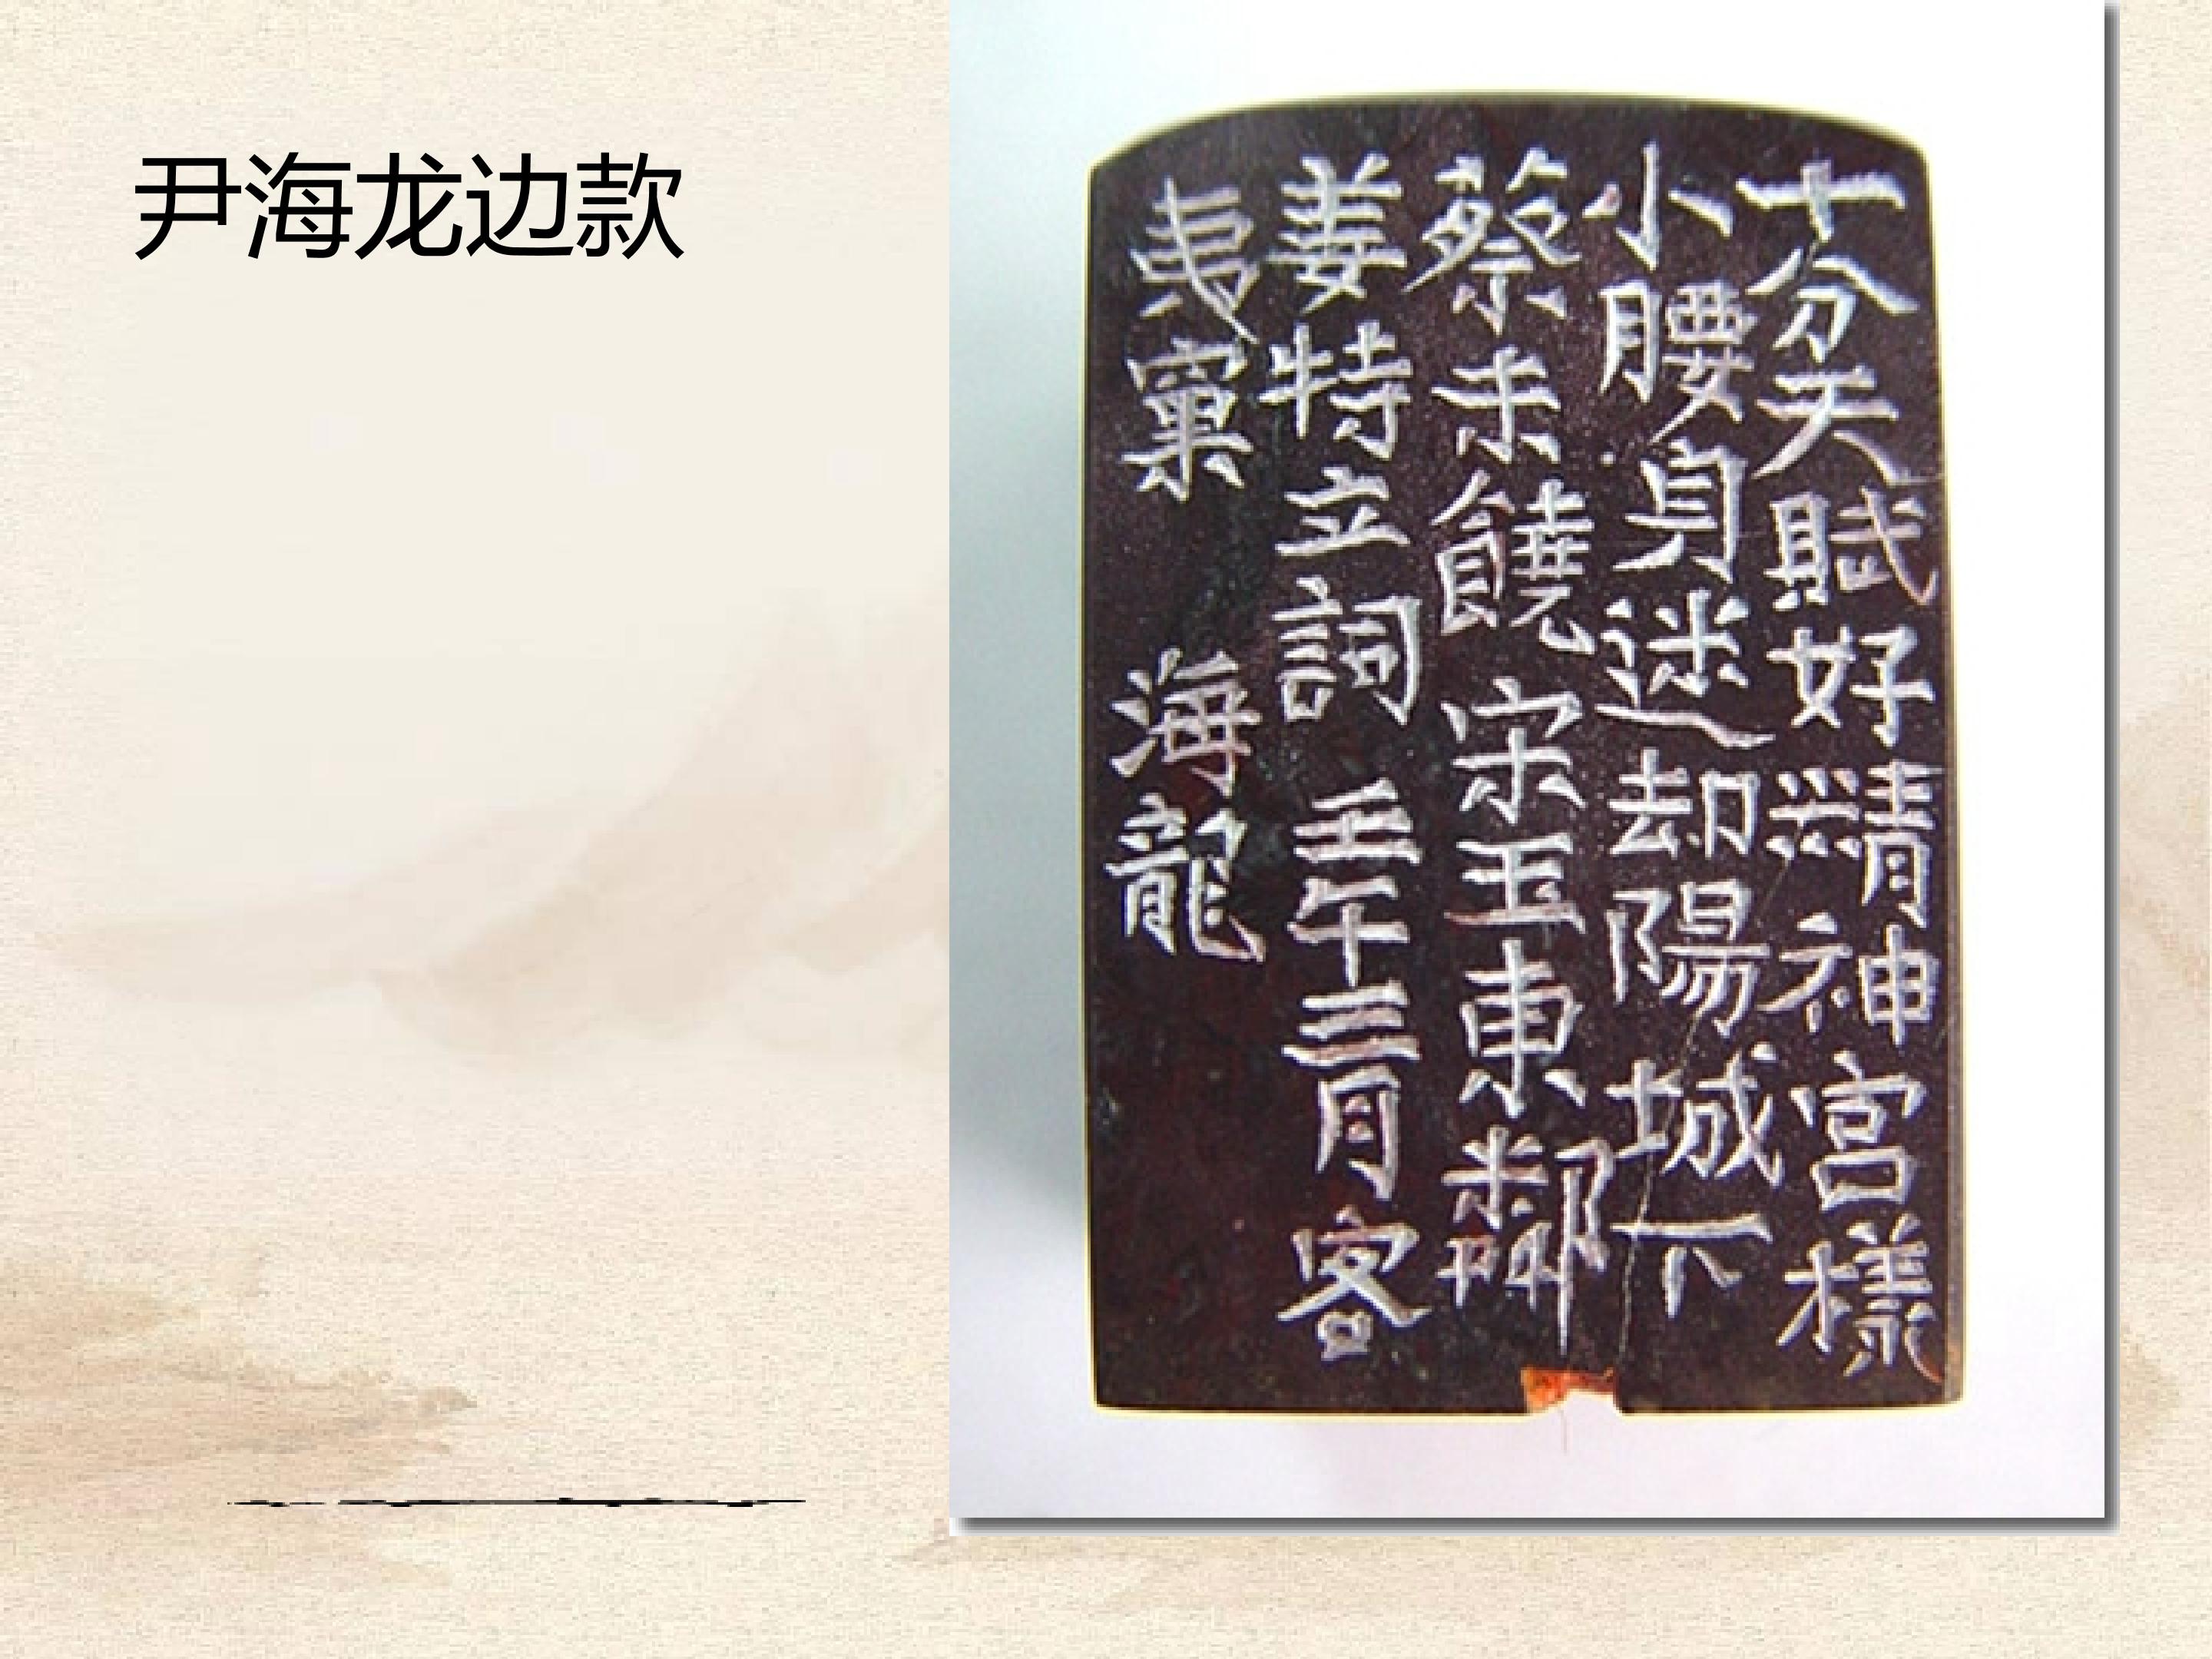 尹海龙边款
十分天賦好精神宮樣
小腰身迷却陽城下
蔡未饒宋玉東鄰
姜特立詞壬午三月客
夷窠 海龍